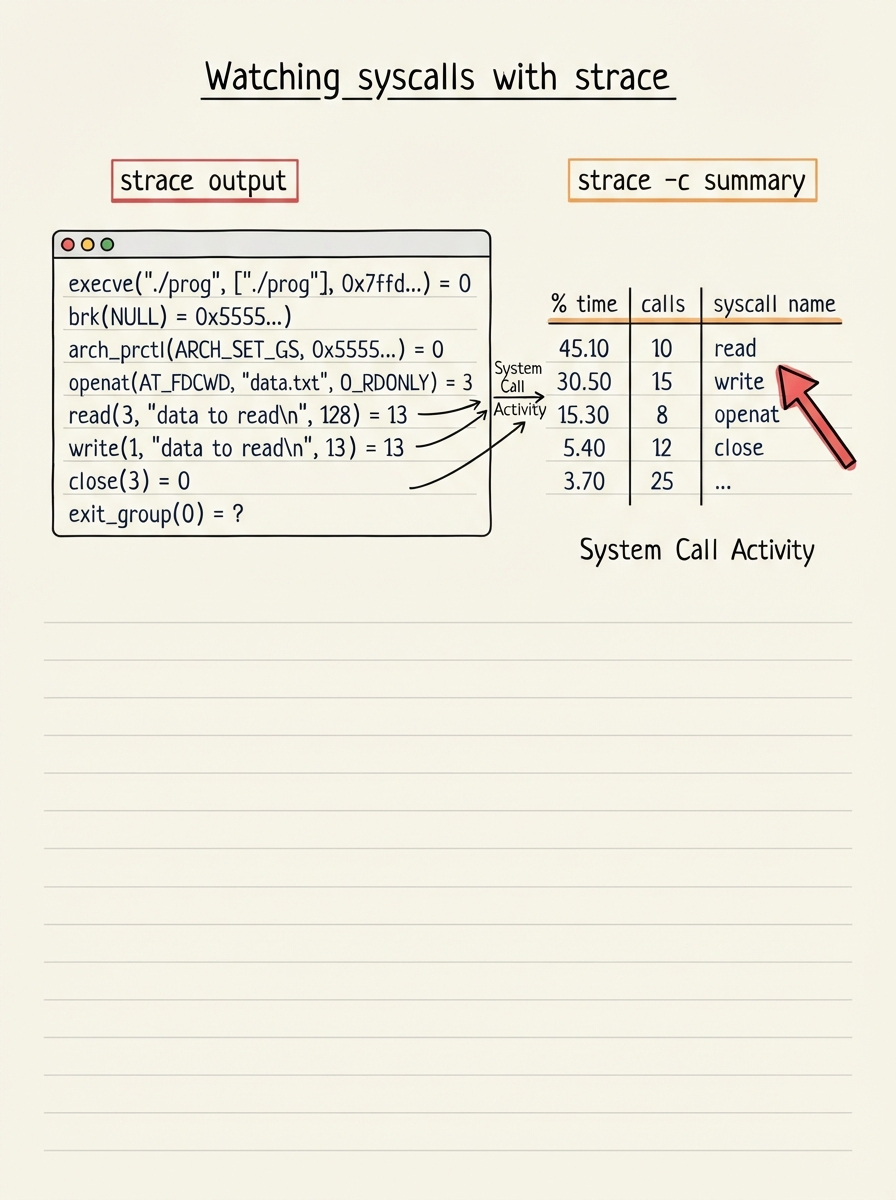 Watching syscalls with strace
strace output
execve("./prog", ["./prog"], 0x7ffd...) = 0
brk(NULL) = 0x5555...)
arch_prctl(ARCH_SET_GS, 0x5555...) = 0
openat(AT_FDCWD, "data.txt", O_RDONLY) = 3
read(3, "data to read\n", 128) = 13
write(1, "data to read\n", 13) = 13
close(3) = 0
exit_group(0) = ?
System
Call
Activity
strace -c summary
% time calls syscall name
45.10 10 read
30.50 15 write
15.30 8 openat
5.40 12 close
3.70 25 ...
System Call Activity